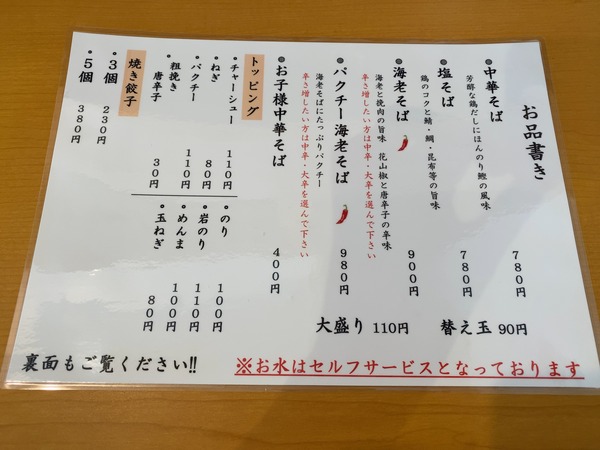 お品書き
◎中華そば 780円
芳醇な鶏だしにほんのり鰹の風味
◎塩そば 780円
鶏のコクと鯖・鯛・昆布等の旨味
◎海老そば 900円
海老と挽肉の旨味 花山椒と唐辛子の辛味
辛さ増したい方は中辛・大辛を選んで下さい
◎パクチー海老そば 980円
海老そばにたっぷりパクチー
辛さ増したい方は中辛・大辛を選んで下さい
◎お子様中華そば 400円
替え玉 90円
大盛り 110円
トッピング
・チャーシュー 110円
・ねぎ 80円
・パクチー 110円
・粗挽き
唐辛子 30円
・のり 100円
・岩のり 110円
・めんま 100円
・玉ねぎ 80円
焼き餃子
・3個 230円
・5個 380円
※お水はセルフサービスとなっております
裏面もご覧ください!!